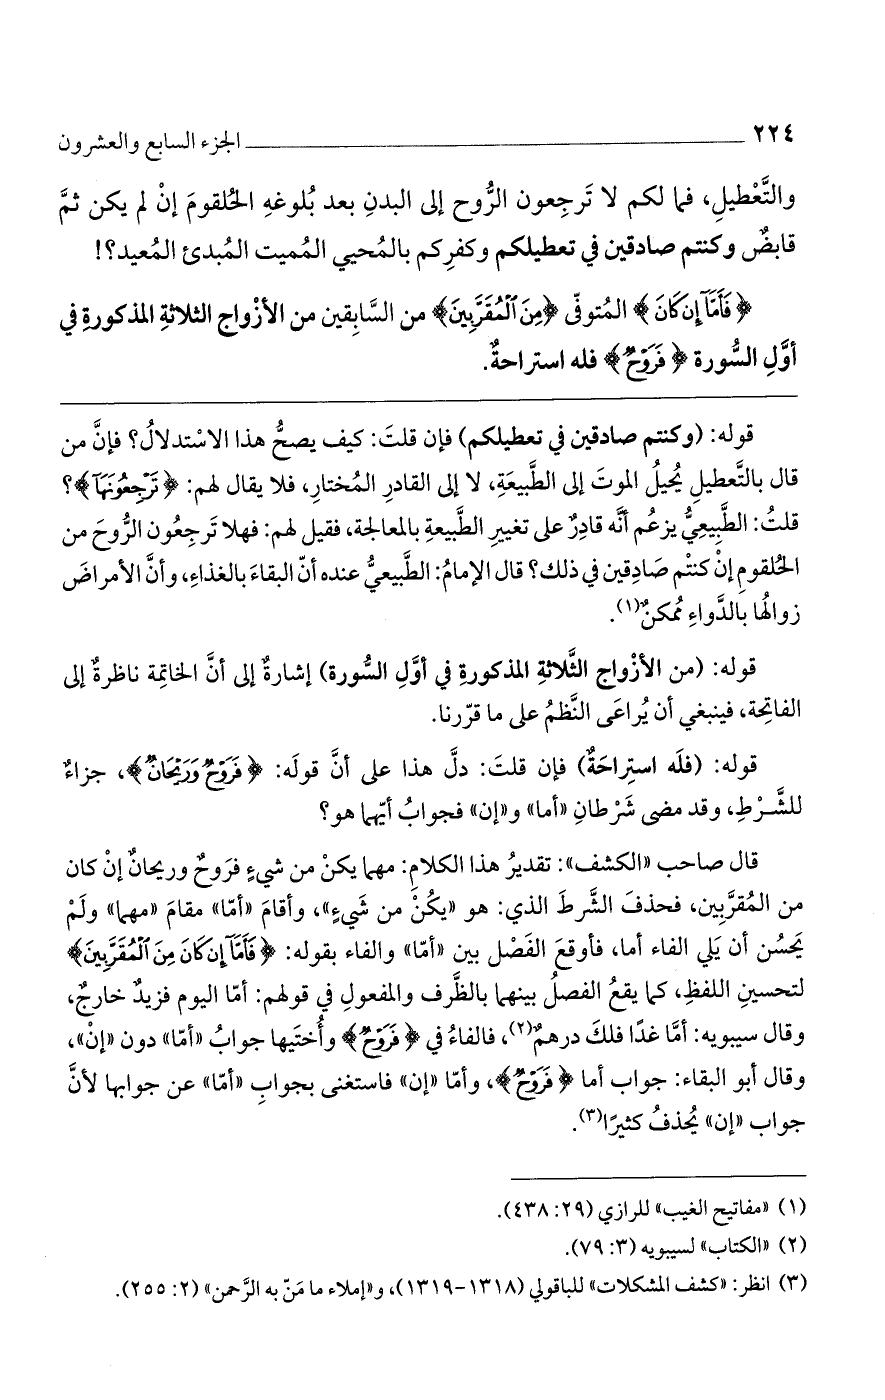 ٢٢٤ الجزء السابع والعشرون
والتَّعْطيلِ، فما لكم لا تَرجِعون الرُّوح إلى البدنِ بعد بُلوغهِ الحُلقومَ إنْ لم يكن ثمَّ
قابضٌ وكنتم صادقين في تعطيلكم وكفرِكم بالمُحيي المُميت المُبدئ المُعيد؟!
﴿فَأَمَّآ إِن كَانَ﴾ المُتوفّى ﴿مِنَ ٱلْمُقَرَّبِينَ﴾ من السَّابِقين من الأزْواج الثلاثةِ المذكورةِ في
أوَّلِ السُّورة ﴿فَرَوْحٌ﴾ فله استراحةٌ.
قوله: (وكنتم صادقين في تعطيلكم) فإن قلتَ: كيف يصحُّ هذا الاسْتدلالُ؟ فإنَّ من
قال بالتَّعطيلِ يُحيلُ الموتَ إلى الطَّبيعَةِ، لا إلى القادرِ المُختارِ، فلا يقال لهم: ﴿تَرْجِعُونَهَآ﴾؟
قلتُ: الطَّبِيعِيُّ يزعُم أنَّه قادِرٌ على تغييرِ الطَّبيعةِ بالمعالجة، فقيل لهم: فهلا تَرجِعُون الرُّوحَ من
الحُلقومِ إنْ كنتْم صَادِقين في ذلك؟ قال الإمامُ: الطَّبيعيُّ عنده أنّ البقاءَ بالغذاءِ، وأنَّ الأمراضَ
زوالُها بالدَّواءِ مُمكنٌ(١).
قوله: (من الأزْواجِ الثَّلاثةِ المذكورةِ في أوَّلِ السُّورة) إشارةٌ إلى أنَّ الخاتِمة ناظرةٌ إلى
الفاتِحة، فينبغي أن يُراعَى النَّظمُ على ما قرّرنا.
قوله: (فلَه استِراحَةٌ) فإن قلتَ: دلَّ هذا على أنَّ قولَه: ﴿فَرَوْحٌ وَرَيْحَانٌ﴾، جزاءٌ
للشَّرْطِ، وقد مضى شَرْطانِ «أما» و«إن» فجوابُ أيّهما هو؟
قال صاحب «الكشف»: تقديرُ هذا الكلامِ: مهما يكنْ من شيءٍ فرَوحٌ وريحانٌ إنْ كان
من المُقرَّبِين، فحذفَ الشَّرطَ الذي: هو «يكُنْ من شَيءٍ»، وأقامَ «أمّا» مقامَ «مهما» ولَمْ
يَحسُن أن يَلي الفاء أما، فأوقعَ الفَصْل بين «أمّا» والفاء بقوله: ﴿فَأَمَّآ إِن كَانَ مِنَ ٱلْمُقَرَّبِينَ﴾
لتحسينِ اللفظِ، كما يقعُ الفصلُ بينهما بالظَّرف والمفعولِ في قولهم: أمّا اليوم فزيدٌ خارجٌ،
وقال سيبويه: أمَّا غدًا فلكَ درهمٌ(٢)، فالفاءُ في ﴿فَرَوْحٌ﴾ وأُختَيها جوابُ «أمّا» دون «إنْ»،
وقال أبو البقاء: جواب أما ﴿فَرَوْحٌ﴾، وأمّا «إن» فاستغنى بجوابِ «أمّا» عن جوابها لأنَّ
جواب «إن» يُحذفُ كثيرًا(٣).
(١) «مفاتيح الغيب» للرازي (٢٩: ٤٣٨).
(٢) «الكتاب» لسيبويه (٣: ٧٩).
(٣) انظر: «كشف المشكلات» للباقولي (١٣١٨-١٣١٩)، و«إملاء ما مَنّ به الرَّحمن» (٢: ٢٥٥).